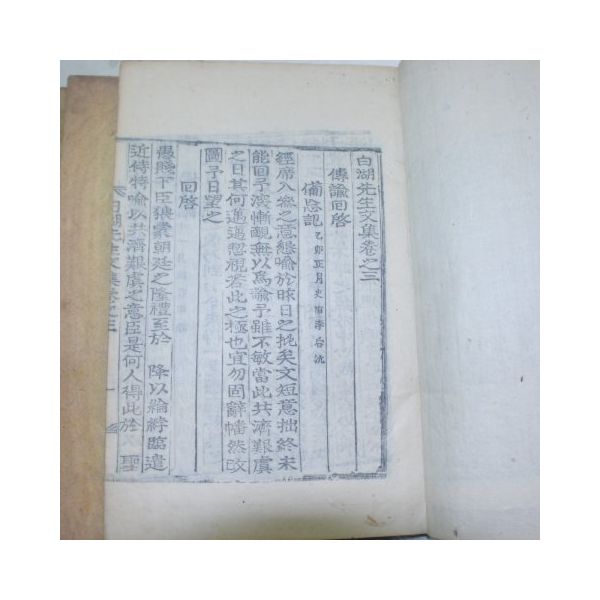 白湖先生文集卷之三
傳諭回啓
備忘記乙卯正月史官李后沆
經席入參之意懸喩於昨日之批矣文短意拙終未
能回予深慚靦無以爲諭予雖不敏當此共濟艱虞
之日其何邁邁恝視若此之極也宜勿固辭幡然改
圖予日望之
回啓
愚賤干臣猥蒙朝廷之隆禮至於 降以綸綍臨遣
近侍特喩以共濟艱虞之意臣是何人得此於 聖
白湖先生文集卷之三